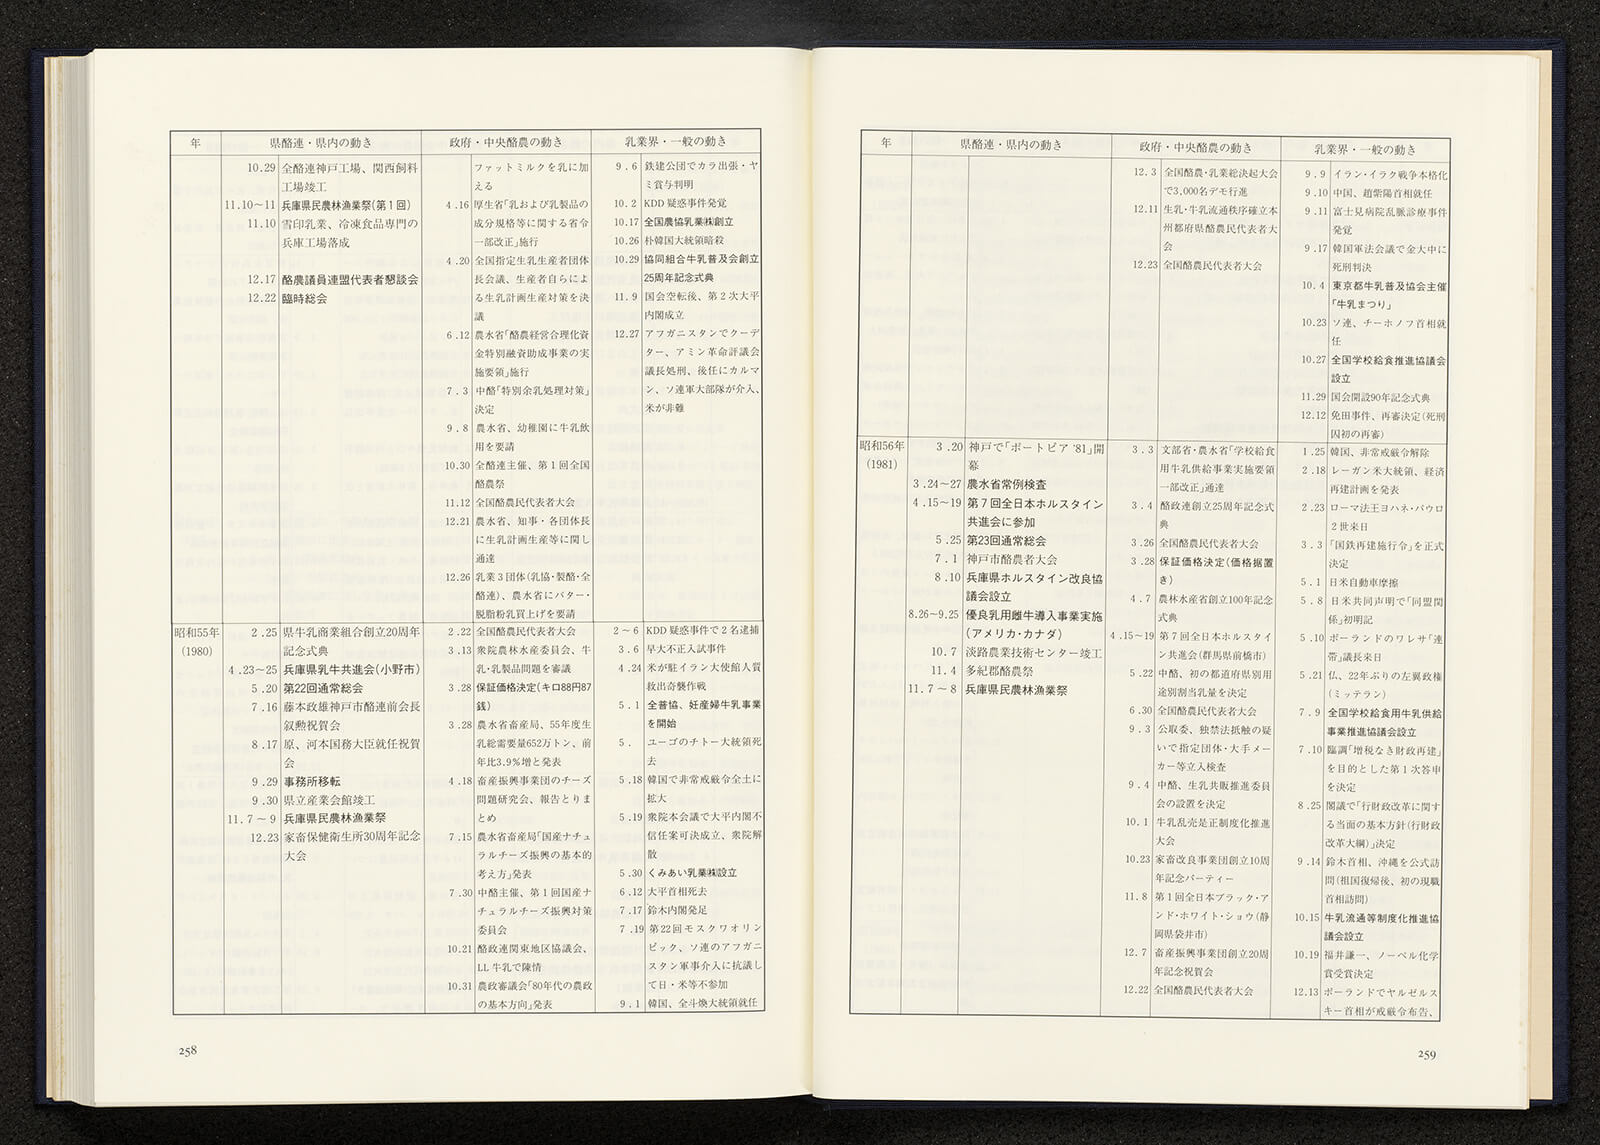 年
県酪連・県内の動き
政府・中央酪農の動き
乳業界・一般の動き
10.29 全酪連神戸工場、関西飼料
工場竣工
11.10〜11 兵庫県民農林漁業祭(第1回)
11.10 雪印乳業、冷凍食品専門の
兵庫工場落成
12.17 酪農議員連盟代表者懇談会
12.22 臨時総会
ファットミルクを乳に加
える
4.16 厚生省「乳および乳製品の
成分規格等に関する省令
一部改正」施行
4.20 全国指定生乳生産者団体
長会議、生産者自らによ
る生乳計画生産対策を決
議
6.12 農水省「酪農経営合理化資
金特別融資助成事業の実
施要領」施行
7.3 中酪「特別余乳処理対策」
決定
9.8 農水省、幼稚園に牛乳飲
用を要請
10.30 全酪連主催、第1回全国
酪農祭
11.12 全国酪農民代表者大会
12.21 農水省、知事・各団体長
に生乳計画生産等に関し
通達
12.26 乳業3団体(乳協・製酪・全
酪連)、農水省にバター・
脱脂粉乳買上げを要請
9.6 鉄建公団でカラ出張・ヤ
ミ賞与判明
10.2 KDD疑惑事件発覚
10.17 全国農協乳業㈱創立
10.26 朴韓国大統領暗殺
10.29 協同組合牛乳普及会創立
25周年記念式典
11.9 国会空転後、第2次大平
内閣成立
12.27 アフガニスタンでクーデ
ター、アミン革命評議会
議長処刑、後任にカルマ
ン、ソ連軍大部隊が介入、
米が非難
昭和55年
(1980)
2.25 県牛乳商業組合創立20周年
記念式典
4.23〜25 兵庫県乳牛共進会(小野市)
5.20 第22回通常総会
7.16 藤本政雄神戸市酪連前会長
叙勲祝賀会
8.17 原、河本国務大臣就任祝賀
会
9.29 事務所移転
9.30 県立産業会館竣工
11.7〜9 兵庫県民農林漁業祭
12.23 家畜保健衛生所30周年記念
大会
2.22 全国酪農民代表者大会
3.13 衆院農林水産委員会、牛
乳・乳製品問題を審議
3.28 保証価格決定(キロ88円87
銭)
3.28 農水省畜産局、55年度生
乳総需要量652万トン、前
年比3.9%増と発表
4.18 畜産振興事業団のチーズ
問題研究会、報告とりま
とめ
7.15 農水省畜産局「国産ナチュ
ラルチーズ振興の基本的
考え方」発表
7.30 中酪主催、第1回国産ナ
チュラルチーズ振興対策
委員会
10.21 酪政連関東地区協議会、
LL牛乳で陳情
10.31 農政審議会「80年代の農政
の基本方向」発表
2〜6 KDD疑惑事件で2名逮捕
3.6 早大不正入試事件
4.24 米が駐イラン大使館人質
救出奇襲作戦
5.1 全普協、妊産婦牛乳事業
を開始
5. ユーゴのチトー大統領死
去
5.18 韓国で非常戒厳令全土に
拡大
5.19 衆院本会議で大平内閣不
信任案可決成立、衆院解
散
5.30 くみあい乳業㈱設立
6.12 大平首相死去
7.17 鈴木内閣発足
7.19 第22回モスクワオリン
ピック、ソ連のアフガニ
スタン軍事介入に抗議し
て日・米等不参加
9.1 韓国、全斗煥大統領就任
258
年
県酪連・県内の動き
政府・中央酪農の動き
乳業界・一般の動き
12.3 全国酪農・乳業総決起大会
で3,000名デモ行進
12.11 生乳・牛乳流通秩序確立本
州都府県酪農民代表者大
会
12.23 全国酪農民代表者大会
9.9 イラン・イラク戦争本格化
9.10 中国、趙紫陽首相就任
9.11 富士見病院乱脈診療事件
発覚
9.17 韓国軍法会議で金大中に
死刑判決
10.4 東京都牛乳普及協会主催
「牛乳まつり」
10.23 ソ連、チーホノフ首相就
任
10.27 全国学校給食推進協議会
設立
11.29 国会開設90年記念式典
12.12 免田事件、再審決定(死刑
囚初の再審)
昭和56年
(1981)
3.20 神戸で「ポートピア'81」開
幕
3.24〜27 農水省常例検査
4.15〜19 第7回全日本ホルスタイン
共進会に参加
5.25 第23回通常総会
7.1 神戸市酪農者大会
8.10 兵庫県ホルスタイン改良協
議会設立
8.26〜9.25 優良乳用雌牛導入事業実施
(アメリカ・カナダ)
10.7 淡路農業技術センター竣工
11.4 多紀郡酪農祭
11.7〜8 兵庫県民農林漁業祭
3.3 文部省・農水省「学校給食
用牛乳供給事業実施要領
一部改正」通達
3.4 酪政連創立25周年記念式
典
3.26 全国酪農民代表者大会
3.28 保証価格決定(価格据置
き)
4.7 農林水産省創立100年記念
式典
4.15〜19 第7回全日本ホルスタイ
ン共進会(群馬県前橋市)
5.22 中酪、初の都道府県別用
途別割当乳量を決定
6.30 全国酪農民代表者大会
9.3 公取委、独禁法抵触の疑
いで指定団体・大手メー
カー等立入検査
9.4 中酪、生乳共販推進委員
会の設置を決定
10.1 牛乳乱売是正制度化推進
大会
10.23 家畜改良事業団創立10周
年記念パーティー
11.8 第1回全日本ブラック・ア
ンド・ホワイト・ショウ(静
岡県袋井市)
12.7 畜産振興事業団創立20周
年記念祝賀会
12.22 全国酪農民代表者大会
1.25 韓国、非常戒厳令解除
2.18 レーガン米大統領、経済
再建計画を発表
2.23 ローマ法王ヨハネ・パウロ
2世来日
3.3 「国鉄再建施行令」を正式
決定
5.1 日米自動車摩擦
5.8 日米共同声明で「同盟関
係」初明記
5.10 ポーランドのワレサ「連
帯」議長来日
5.21 仏、22年ぶりの左翼政権
(ミッテラン)
7.9 全国学校給食用牛乳供給
事業推進協議会設立
7.10 臨調「増税なき財政再建」
を目的とした第1次答申
を決定
8.25 閣議で「行財政改革に関す
る当面の基本方針(行財政
改革大綱)」決定
9.14 鈴木首相、沖縄を公式訪
問(祖国復帰後、初の現職
首相訪問)
10.15 牛乳流通等制度化推進協
議会設立
10.19 福井謙一、ノーベル化学
賞受賞決定
12.13 ポーランドでヤルゼルス
キー首相が戒厳令布告、
259